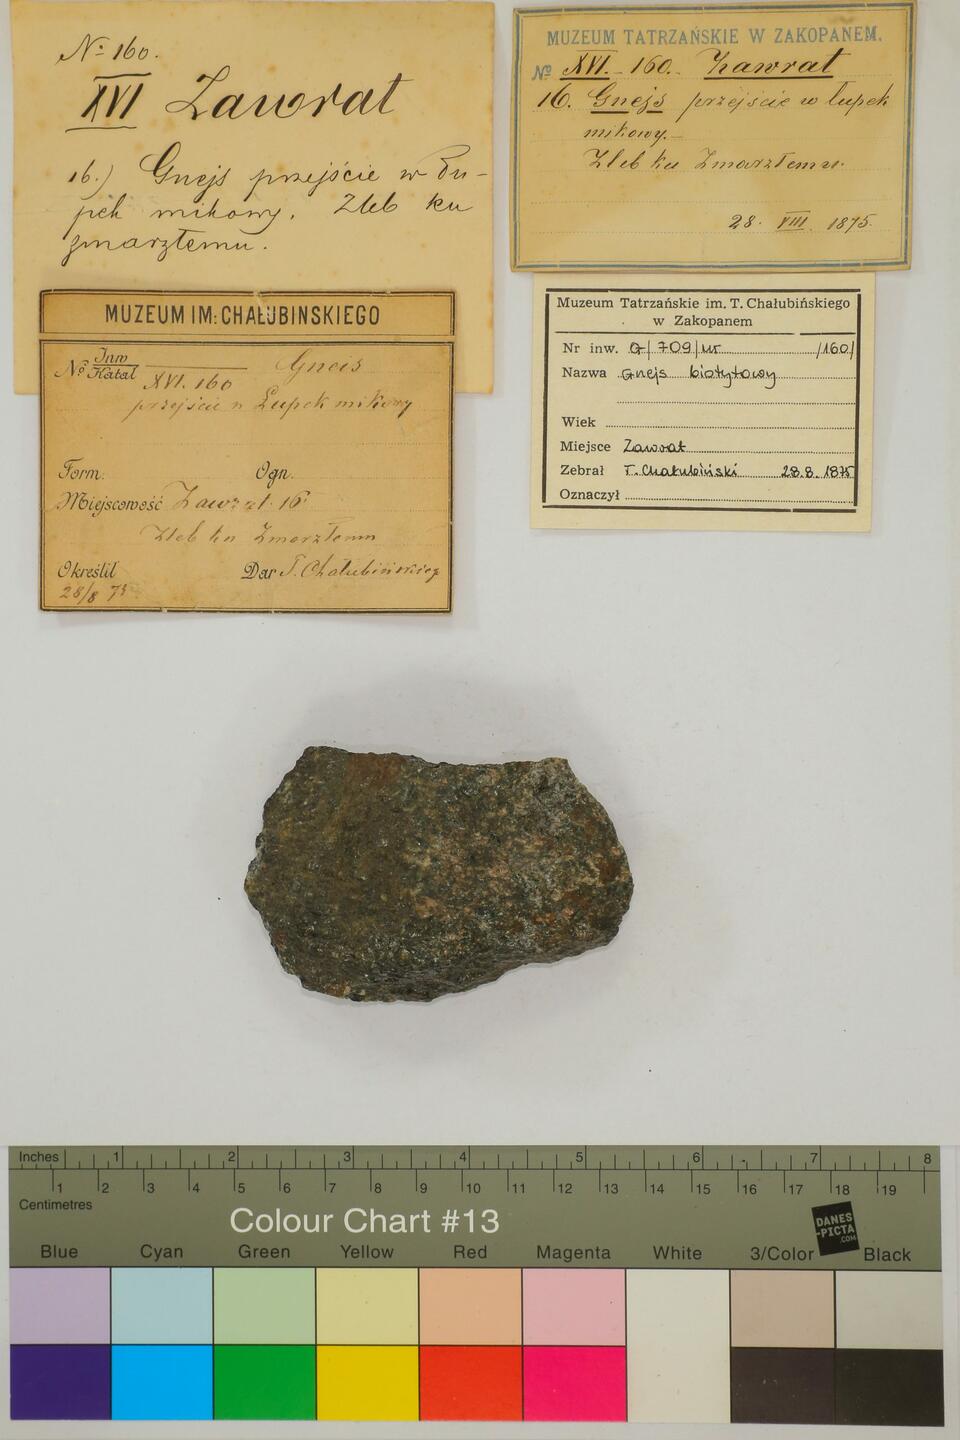 № 160.
XVI Zawrat
16.) Gnejs przejście w Łu-
pek mikowy. Zleb ku
zmarzłemu.
MUZEUM TATRZAŃSKIE W ZAKOPANEM.
№ XVI. 160. Zawrat
16. Gnejs przejście w łupek
mikowy.
Zleb ku Zmarzłemu.
28. VIII. 1875.
MUZEUM IM: CHAŁUBINSKIEGO
№ Inw Katal XVI. 160 Gneis
przejście w Łupek mikowy
Form. Ogn.
Miejscowość Zawrat 16
Zleb ku Zmarzłemu
Określił Dar T. Chałubińskiego
28/8 75
Muzeum Tatrzańskie im. T. Chałubińskiego
w Zakopanem
Nr inw. G/709/ur /160/
Nazwa Gnejs biotytowy
Wiek
Miejsce Zawrat
Zebrał T. Chałubiński 28.8.1875
Oznaczył
Inches 1 2 3 4 5 6 7 8
1 2 3 4 5 6 7 8 9 10 11 12 13 14 15 16 17 18 19
Centimetres
Colour Chart #13
DANES
-PICTA
.COM
Blue Cyan Green Yellow Red Magenta White 3/Color Black